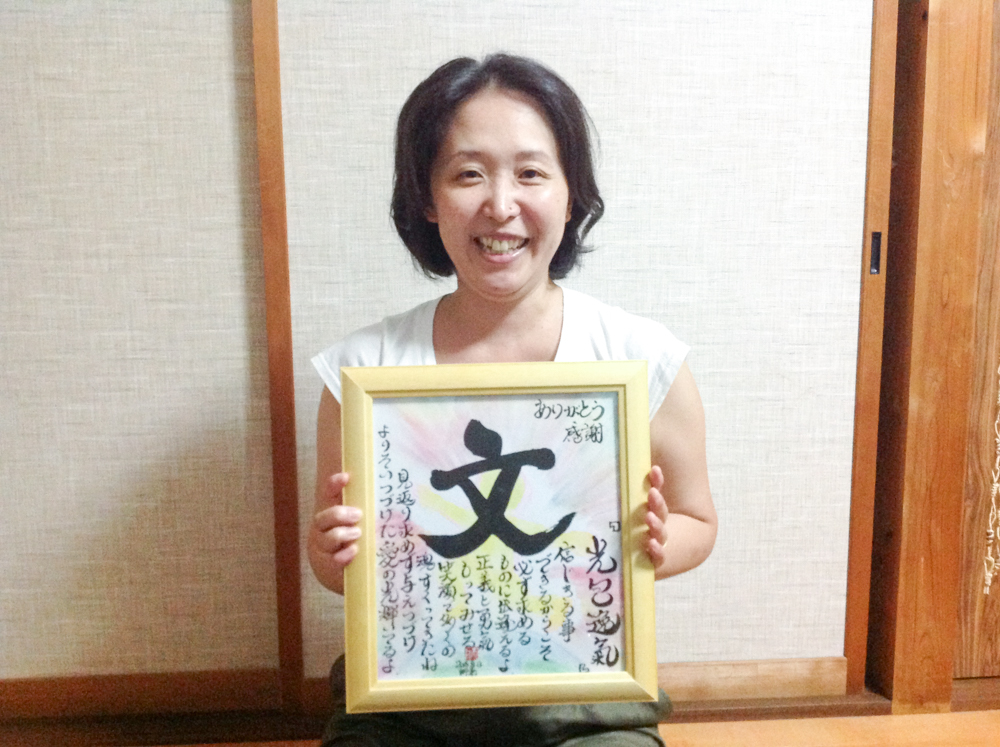 ありがとう
感謝
文
信じきる事
できるからこそ
必ず求める
ものに出逢えるよ
正義と勇氣
もってみせる
笑顔で多くの
魂すくってきたね
見返り求めず与えつづけ
よりそいつづけた愛の光輝いてるよ